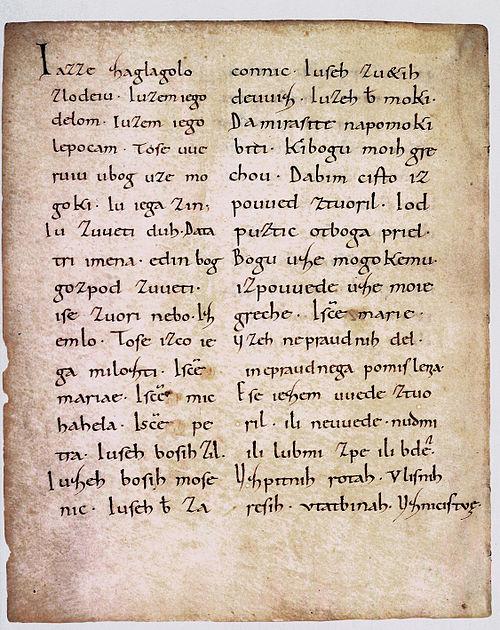 Iazze zaglagolo
zlodeiu. Iuzem iego
delom. Iuzem iego
lepocam. Tose uue
ruiu ubog uze mo
goki. Iu iega zin.
Iu zuueti duh. Data
tri imena. edin bog
gozpod zuueti.
ise zuori nebo. Iz
emlo. Tose izco ie
ga milozti. Iscē
mariae. Iscē mic
hahela. Iscē pe
tra. Iuseh bosih zil.
Iuzeh bosih mose
nic. Iuseh b̄ za
connic. Iuseh zu&ih
deuuiz. Iuzeh b̄ moki.
Da mirasite napomoki
biti. Kibogu moih gre
chou. Dabim cisto iz
pouued ztuoril. Iod
puztic otboga priel.
Bogu uze mogokemu.
izpouuede uze moie
greche. Iscē marie.
uzeh nepraudnih del.
inepraudnega pomislera.
Ese iezem uuede ztuo
ril. ili neuuede. nudmi
ili lubmi zpe ili bdē.
Uzpitnih rotah. Vlisnih
resih. vtatbinah. Uznicistve.